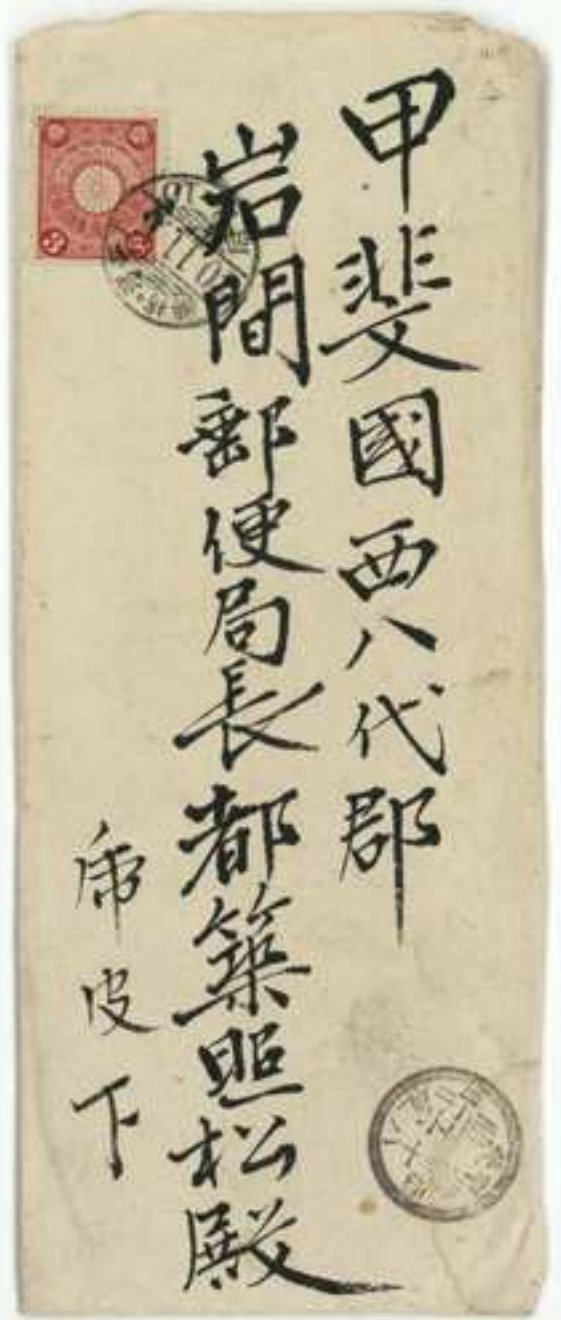 甲斐國西八代郡
岩間郵便局長都築照松殿
虎皮下